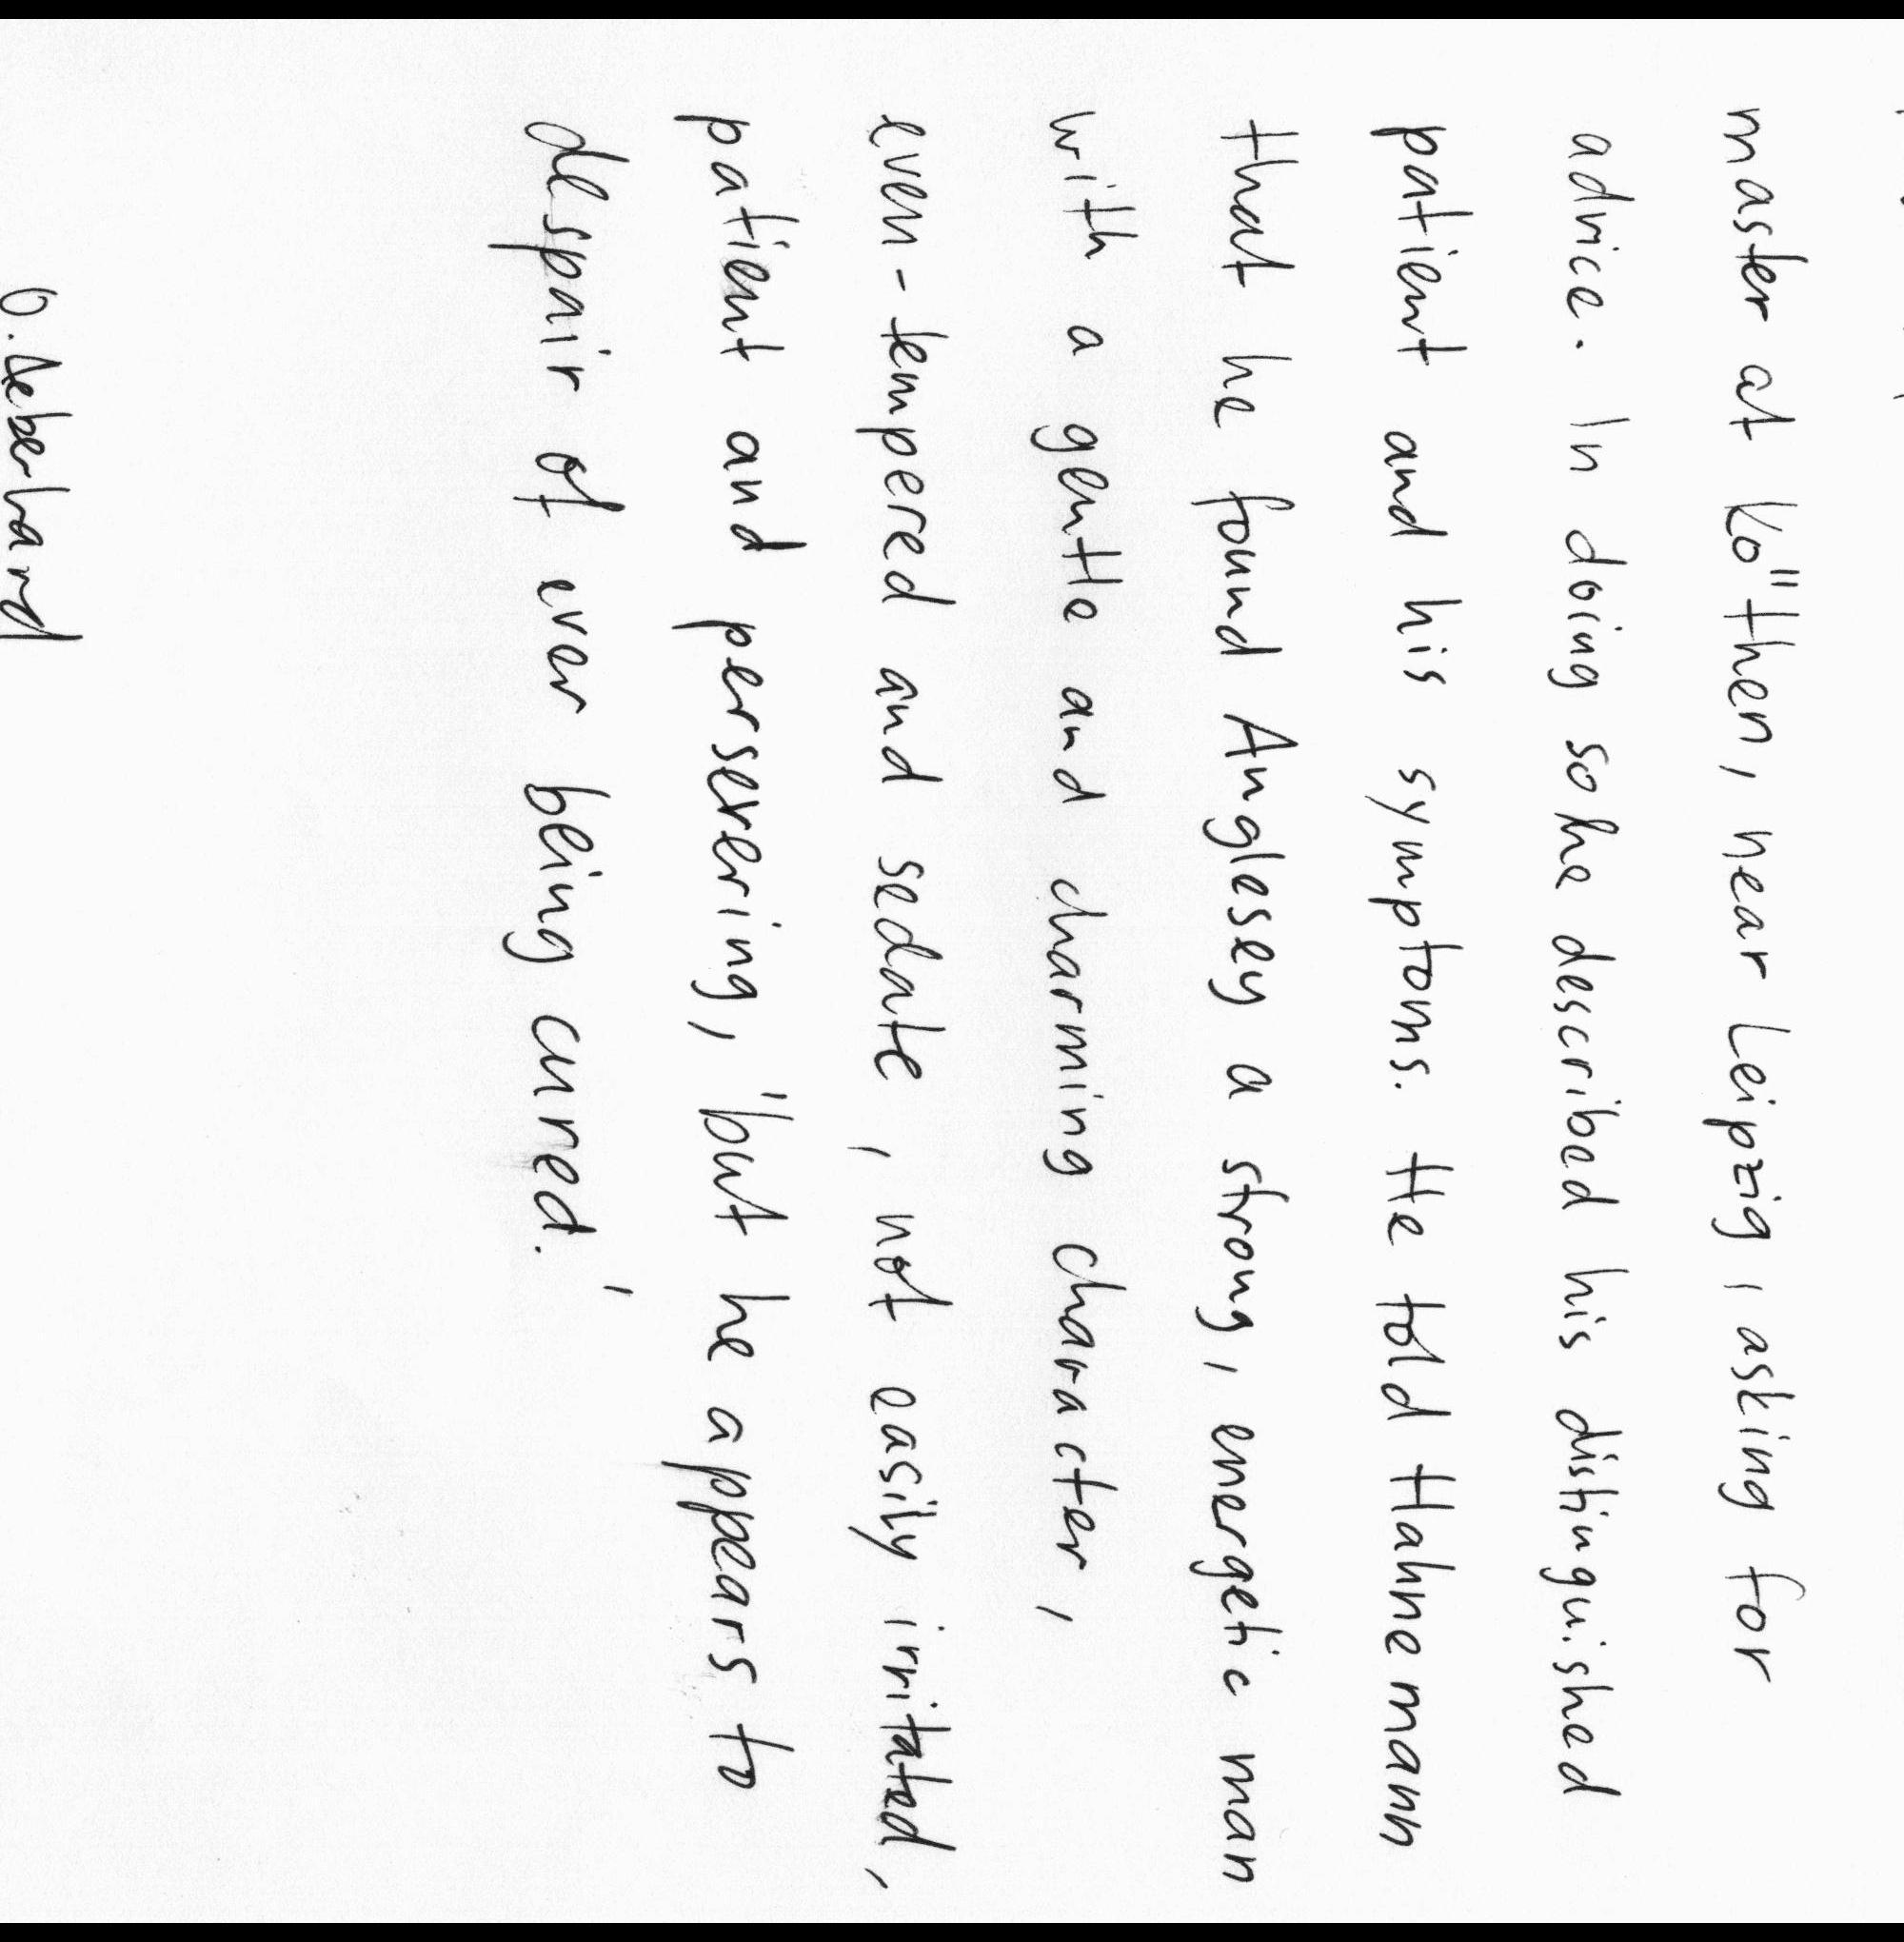 master at Kö"then, near Leipzig, asking for
advice. In doing so he described his distinguished
patient and his symptoms. He told Hahnemann
that he found Anglesey a strong, energetic man
with a gentle and charming character,
even-tempered and sedate, not easily irritated,
patient and persevering, 'but he appears to
despair of ever being cured.'